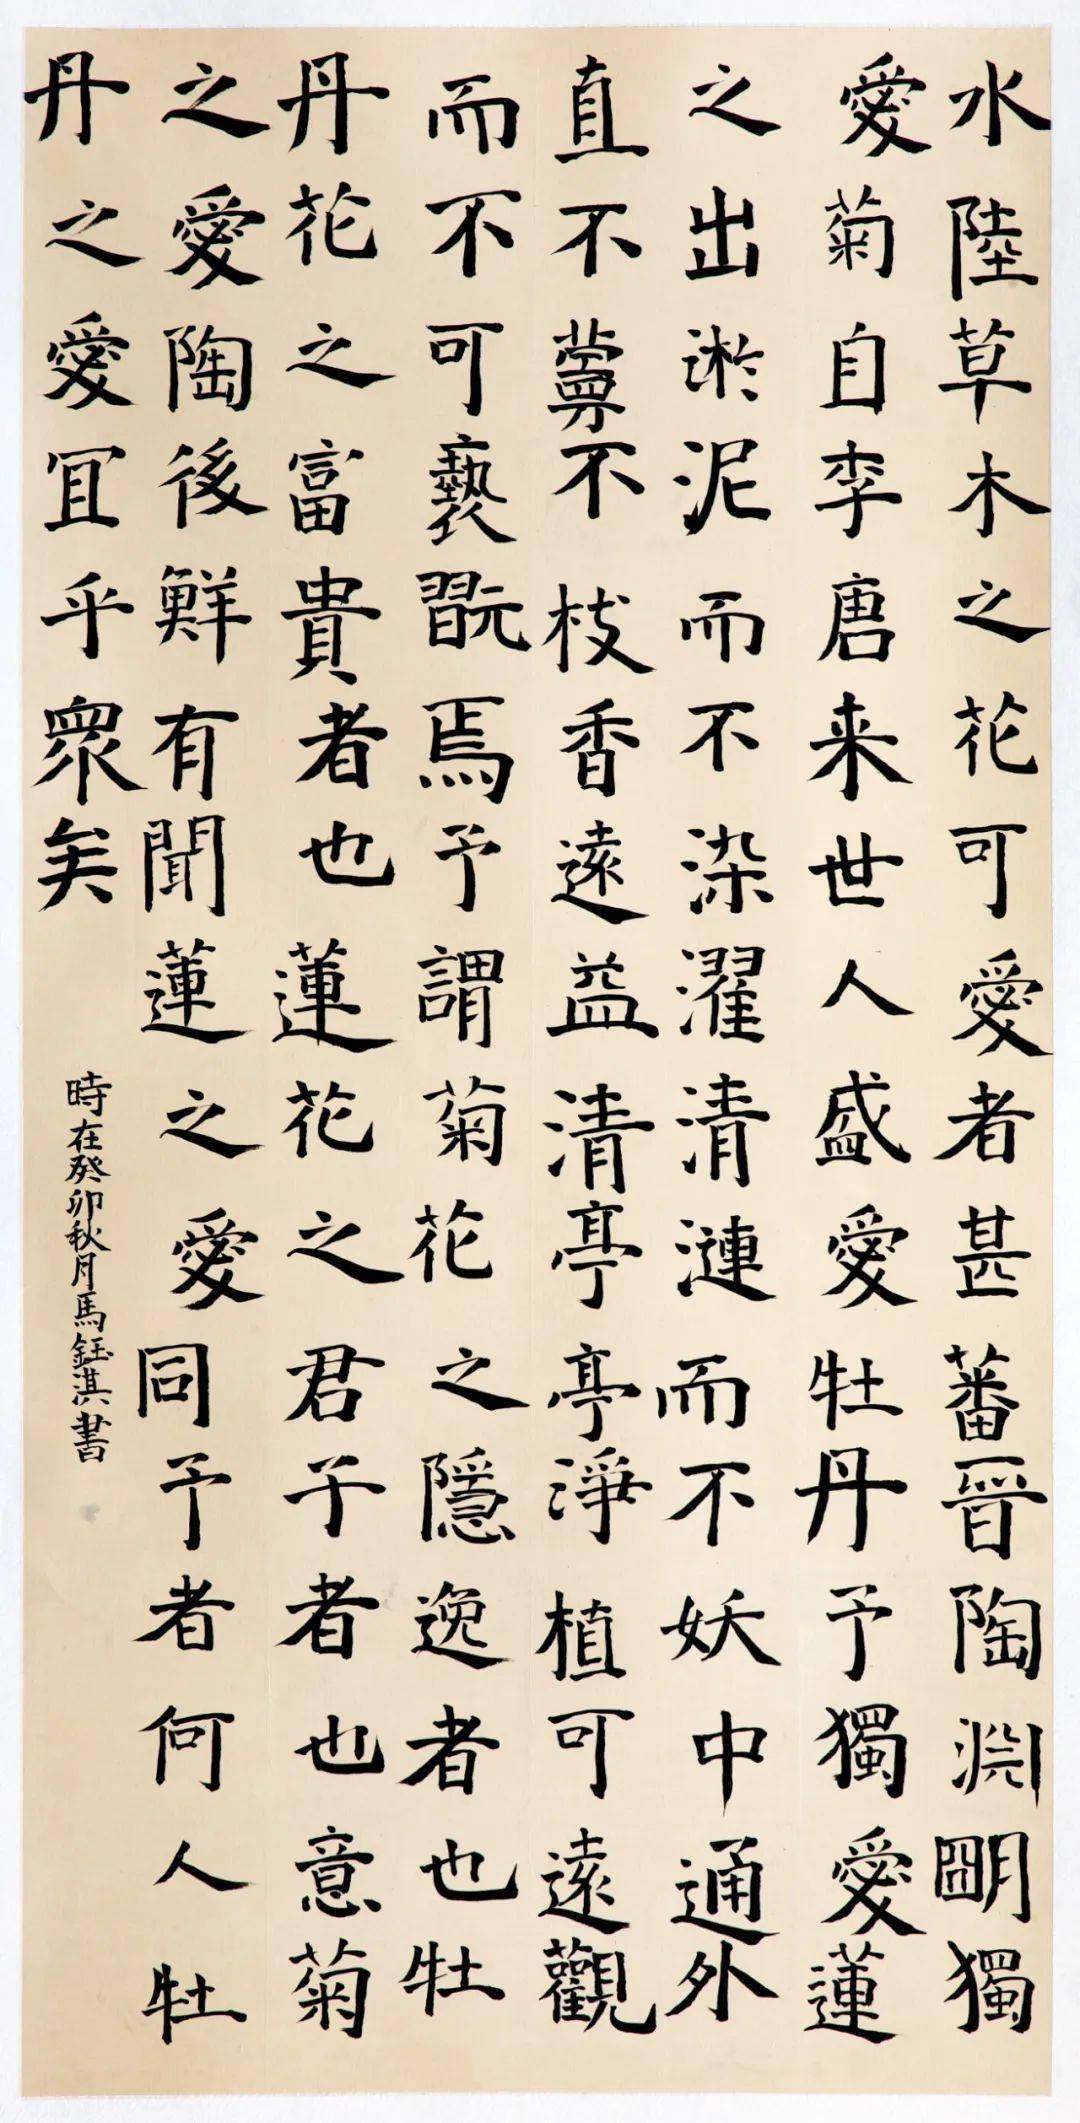 水陸草木之花可愛者甚蕃晉陶淵朙獨
愛菊自李唐来世人盛愛牡丹予獨愛蓮
之出淤泥而不染濯清漣而不妖中通外
直不蔓不枝香遠益清亭亭淨植可遠觀
而不可褻翫焉予謂菊花之隱逸者也牡
丹花之富貴者也蓮花之君子者也意菊
之愛陶後鮮有聞蓮之愛同予者何人牡
丹之愛冝乎眾矣
時在癸卯秋月馬鈺淇書